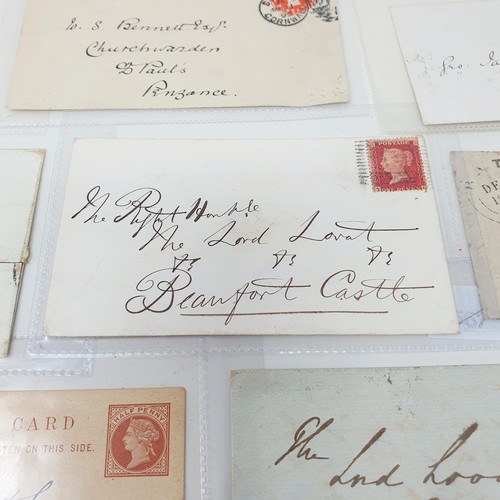 W. S. Bennett Esqr.
Churchwarden
St Paul's
Penzance.
CORNWALL
The Right Honble.
The Lord Lovat
&c &c &c
Beaufort Castle
POSTAGE
CARD
TEN ON THIS SIDE.
HALF PENNY
The
Lord